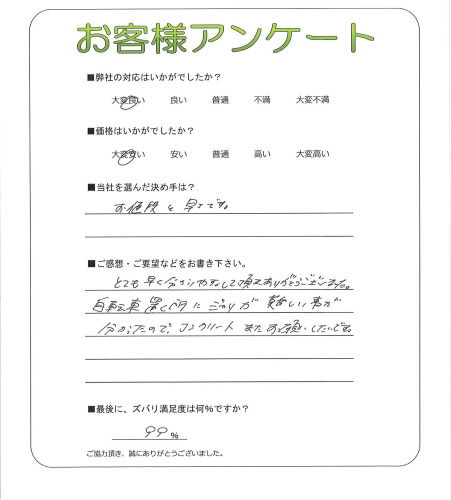 お客様アンケート
■弊社の対応はいかがでしたか？
大変良い 良い 普通 不満 大変不満
■価格はいかがでしたか？
大変安い 安い 普通 高い 大変高い
■当社を選んだ決め手は？
お値段と早さです。
■ご感想・ご要望などをお書き下さい。
とても早く分かりやすくして頂きありがとうございました。
自転車置く時に ジャリが難しい事が
分かったので、コンクリートまたお願いしたいです
■最後に、ズバリ満足度は何%ですか？
99 %
ご協力頂き、誠にありがとうございました。